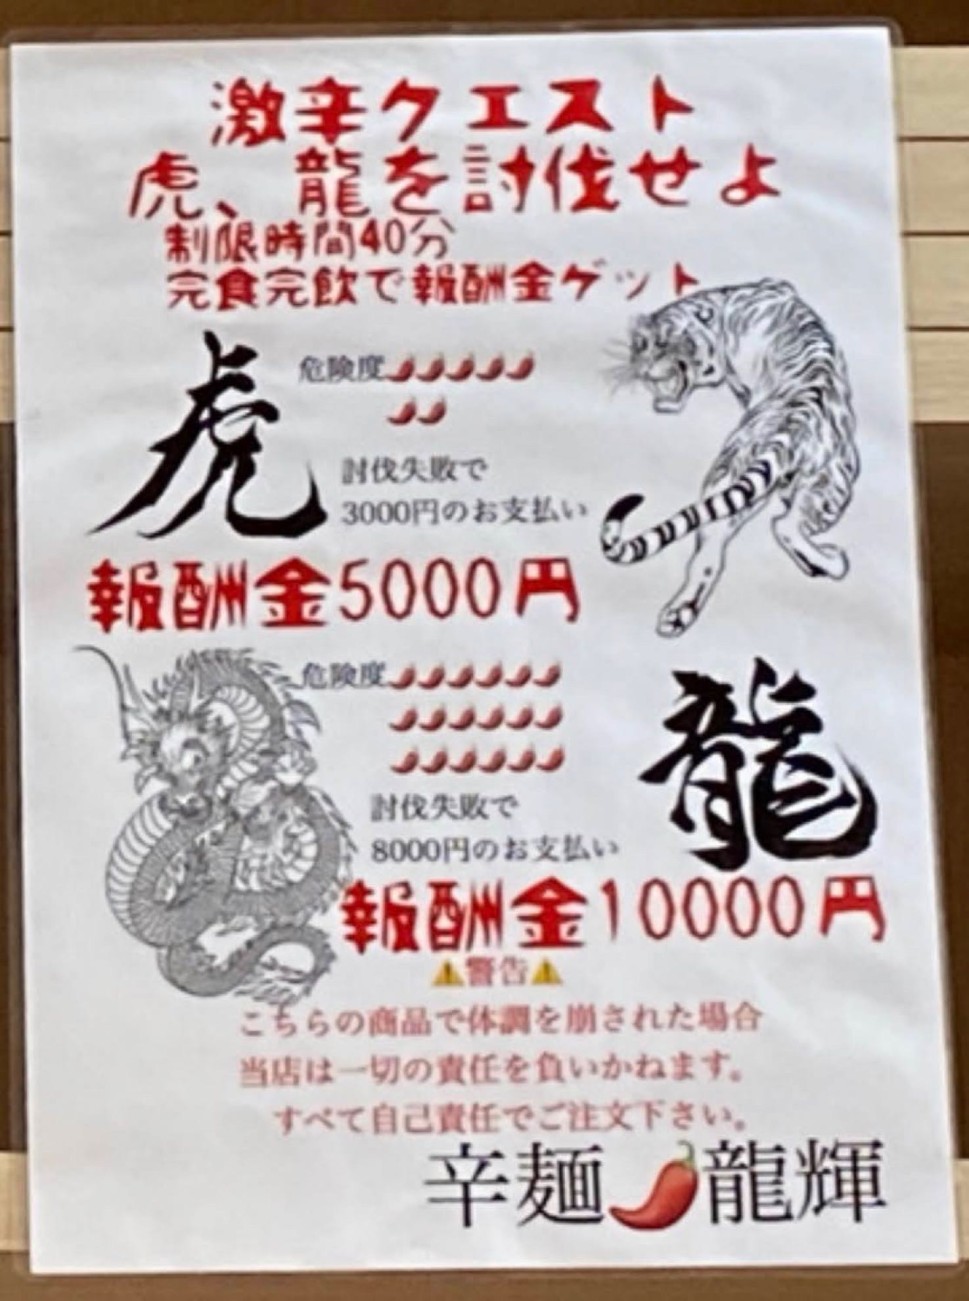 激辛クエスト
虎、龍を討伐せよ
制限時間40分
完食完飲で報酬金ゲット
虎
危険度🌶🌶🌶🌶🌶
🌶🌶
討伐失敗で
3000円のお支払い
報酬金5000円
危険度🌶🌶🌶🌶🌶🌶
🌶🌶🌶🌶🌶🌶
🌶🌶🌶🌶🌶🌶
龍
討伐失敗で
8000円のお支払い
報酬金10000円
⚠️警告⚠️
こちらの商品で体調を崩された場合
当店は一切の責任を負いかねます。
すべて自己責任でご注文下さい。
辛麺🌶龍輝